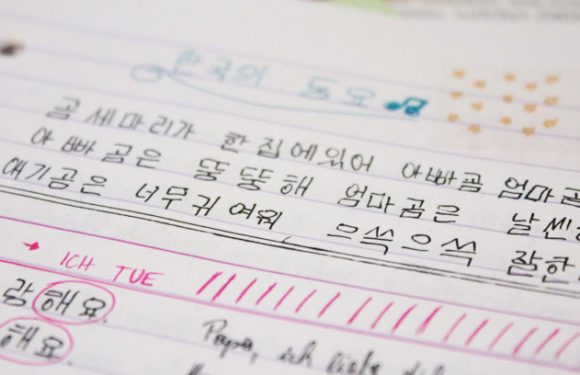 한국의 동요
곰 세마리가 한 집에있어 아빠곰 엄마곰
아빠곰은 뚱뚱해 엄마곰은 날씬
애기곰은 너무귀여워, 으쓱으쓱 잘한
ICH TUE
랑해요.
해요
Papa, ich liebe dich